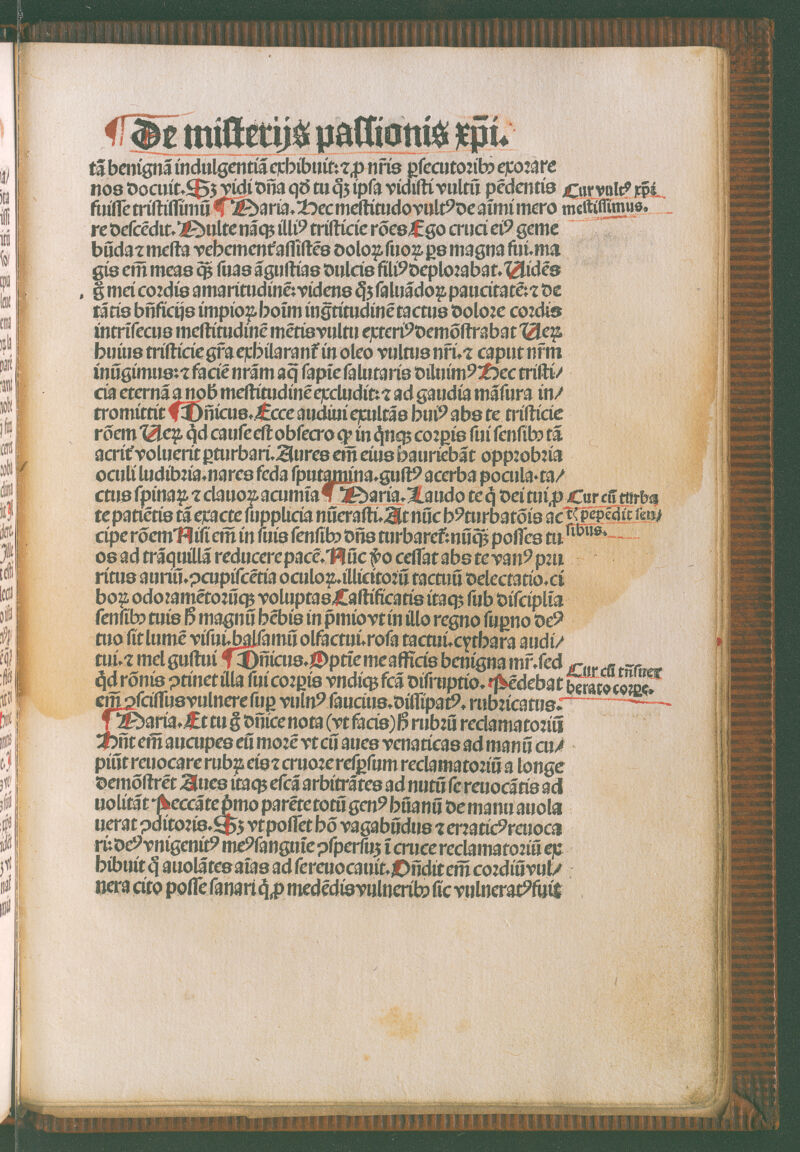 ¶ De misterijs passionis xp̄i.
tā benignā indulgentiā exhibuit: ⁊ ꝓ nr̄is ꝑsecutoribꝰ exorare
nos docuit. Sꝫ vidi dn̄a qd̄ tu qꝫ ipsa vidisti vultū pēdentis
fuisse tristissimū ¶ Maria. Hec mestitudo vultꝰ de aīmi mero
re descēdit. Multe nāqꝫ illiꝰ tristicie rōes Ego cruci eiꝰ geme
būda ⁊ mesta vehement̄ assistēs doloꝝ suoꝝ ꝑs magna fui. ma
gis em̄ meas qꝫ̄ suas āgustias dulcis filiꝰ deplorabat. Uidēs
g̊ mei cordis amaritudinē: videns qꝫ̊ saluādoꝝ paucitatē: ⁊ de
tātis bn̄ficijs impioꝝ hoīm ing̃titudinē tactus dolore cordis
intrīsecus mestitudinē mētis vultu exteriꝰ demōstrabat Ueꝝ
huius tristicie gr̄a exhilarant̄ in oleo vultus nr̄i. ⁊ caput nr̄m
inūgimus: ⁊ faciē nrām aq̄ sapīe salutaris diluimꝰ Hec tristi⸗
cia eternā a nob̄ mestitudinē excludit: ⁊ ad gaudia māsura in⸗
tromittit ¶ Dn̄icus. Ecce audiui exultās huiꝰ abs te tristicie
rōem Ueꝝ qd̓ cause est obsecro ꝙ in qn̓qꝫ corꝑis sui sensibꝰ tā
acrit̄ voluerit ꝑturbari. Aures em̄ eius hauriebāt opprobria
oculi ludibria. nares feda sputamina. gustꝰ acerba pocula. ta⸗
ctus spinaꝝ ⁊ clauoꝝ acumīa ¶ Maria. Laudo te q̓ dei tui ꝓ
te patiētis tā exacte supplicia nūerasti. At nūc hꝰ turbatōis ac
cipe rōem Nisi em̄ in suis sensibꝰ dn̄s turbaret̄: nūqꝫ̄ posses tu
os ad trāquillā reducere pacē. Nūc v̊o cessat abs te vanꝰ pru
ritus auriū. ꝯcupiscētia oculoꝝ. illicitorū tactuū delectatio. ci
boꝝ odoramētorūqꝫ voluptas Castificatis itaqꝫ sub disciplīa
sensibꝰ tuis h̄ magnū hēbis in p̄mio vt in illo regno suꝑno deꝰ
tuo sit lumē visui. balsamū olfactui. rosa tactui. cythara audi⸗
tui. ⁊ mel gustui ¶ Dn̄icus. Optīe me afficis benigna mr̄. sed
qd̓ rōnis ꝯtinet illa sui corꝑis vndiqꝫ fcā disruptio. Pēdebat
em̄ ꝯscissus vulnere suꝑ vulnꝰ saucius. dissipatꝰ. rubricatus.
¶ Maria. Et tu g̊ dn̄ice nota (vt facis) h̄ rubrū reclamatoriū
Hn̄t em̄ aucupes eū morē vt cū aues venaticas ad manū cu⸗
piūt reuocare rubꝝ eis ⁊ cruore resꝑsum reclamatoriū a longe
demōstrēt Aues itaqꝫ escā arbitrātes ad nutū se reuocātis ad
uolitāt Peccāte p̓mo parēte totū genꝰ hūanū de manu auola
uerat ꝯditoris. Sꝫ vt posset hō vagabūdus ⁊ erraticꝰ reuoca
ri: deꝰ vnigenitꝰ meꝰ sanguīe ꝯspersuꝫ ī cruce reclamatoriū ex
hibuit q̊ auolātes aīas ad se reuocauit. Ondit em̄ cordiū vul⸗
nera cito posse sanari q̓ ꝓ medēdis vulneribꝰ sic vulneratꝰ fuit
Cur vultꝰ xp̄i
mestissimus.
Cur cū turba
t̄ꝰ pepēdit sen⸗
sibus.
Cur cū trn̄suer
berato corꝑe.